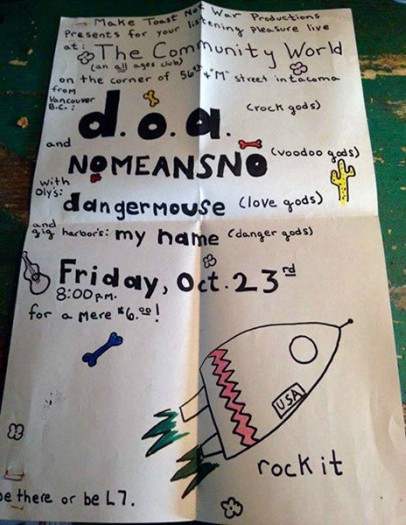 Make Toast Not War Productions
Presents for your listening pleasure live
at: The Community World
(an all ages club)
on the corner of 56th & "M" street in tacoma
from
Vancouver
B.C.:
d.o.a. (rock gods)
and
NOMEANSNO (voodoo gods)
with
Oly's:
dangermouse (love gods)
and
gig harbor's: my name (danger gods)
Friday, Oct. 23rd
8:00 p.m.
for a mere $6.00!
USA
rock it
be there or be L7.